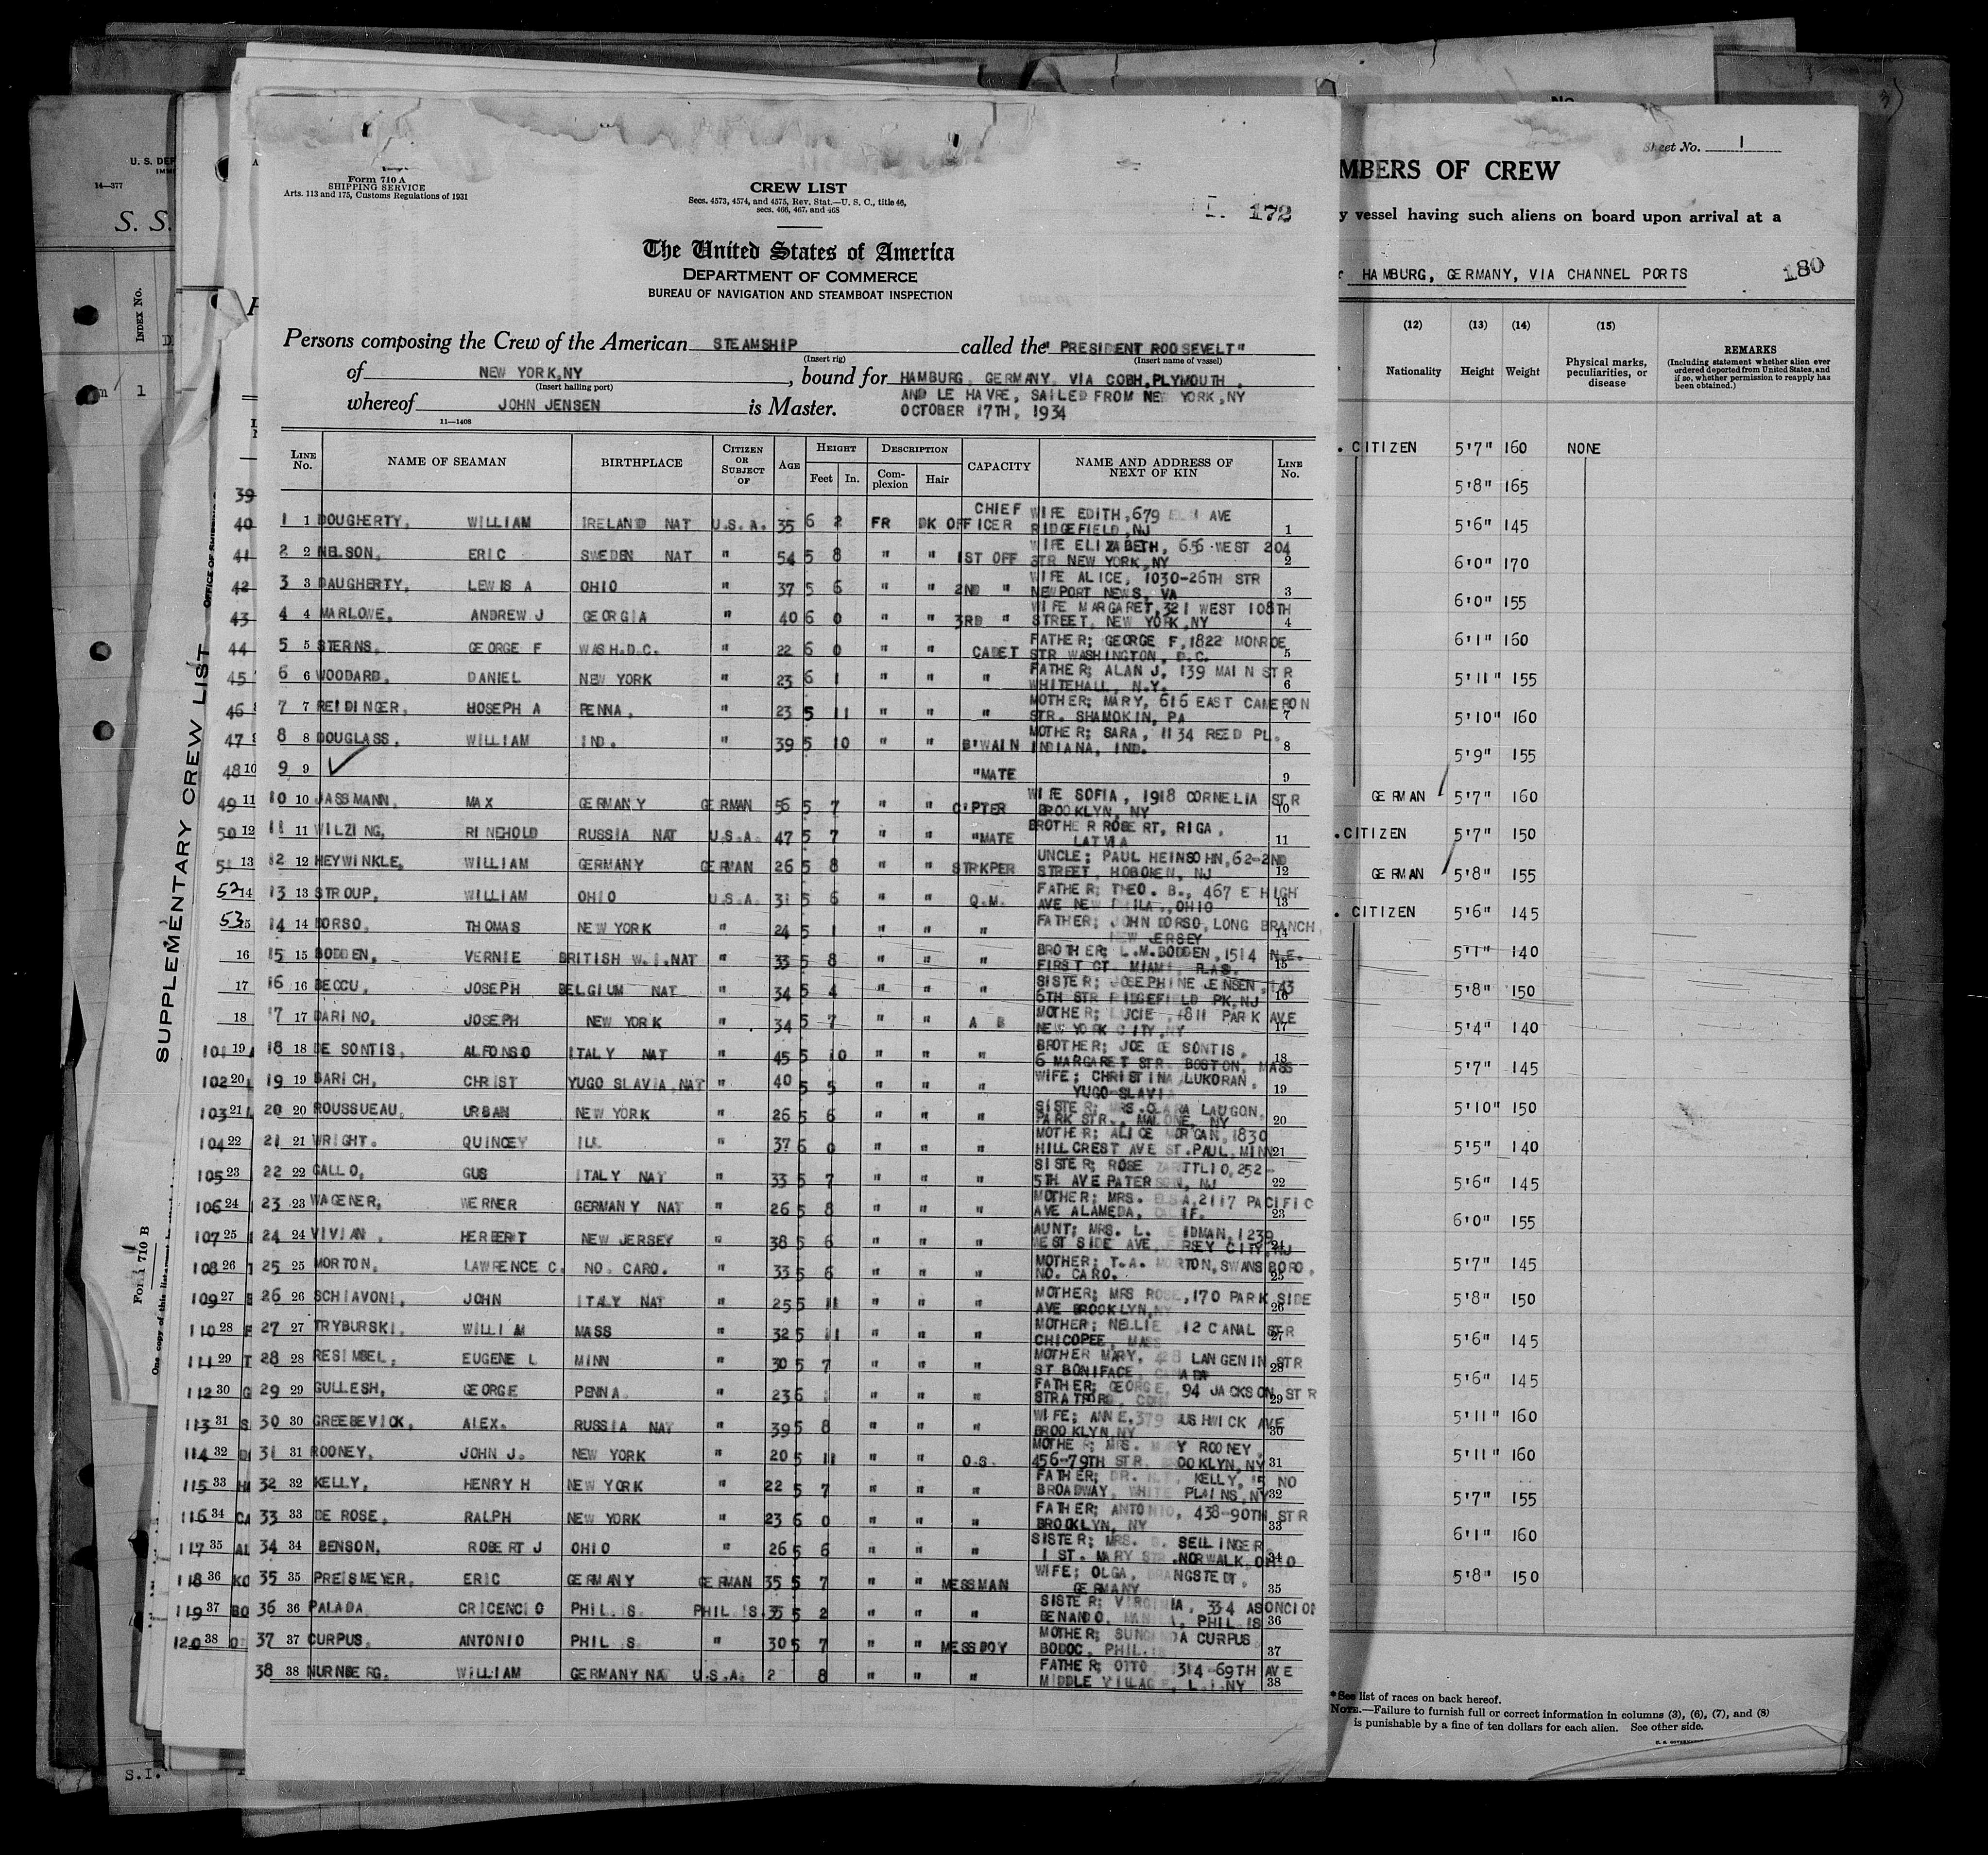 Form 710 A
SHIPPING SERVICE
Arts. 113 and 175, Customs Regulations of 1931
CREW LIST
Secs. 4573, 4574, and 4575, Rev. Stat.—U. S. C., title 46,
secs. 466, 467, and 468
172
The United States of America
DEPARTMENT OF COMMERCE
BUREAU OF NAVIGATION AND STEAMBOAT INSPECTION
Persons composing the Crew of the American STEAMSHIP called the "PRESIDENT ROOSEVELT"
(Insert rig) (Insert name of vessel)
of NEW YORK,NY, bound for HAMBURG, GERMANY, VIA COBH,PLYMOUTH,
(Insert hailing port) AND LE HAVRE, SAILED FROM NEW YORK,NY
whereof JOHN JENSEN is Master. OCTOBER 17TH, 1934
11—1408
LINE No. NAME OF SEAMAN BIRTHPLACE CITIZEN OR SUBJECT OF AGE HEIGHT Feet In. DESCRIPTION Complexion Hair CAPACITY NAME AND ADDRESS OF NEXT OF KIN LINE No.
1 1 DOUGHERTY, WILLIAM IRELAND NAT U.S.A. 35 6 2 FR DK CHIEF OFFICER WIFE EDITH, 679 AVE RIDGEFIELD,NJ 1
2 2 NELSON, ERIC SWEDEN NAT " 54 5 8 " " 1ST OFF WIFE ELIZABETH, 656 WEST 204 STR NEW YORK,NY 2
3 3 DAUGHERTY, LEWIS A OHIO " 37 5 6 " " 2ND " WIFE ALICE, 1030-26TH STR NEWPORT NEWS, VA 3
4 4 MARLOWE, ANDREW J GEORGIA " 40 6 0 " " 3RD " WIFE MARGARET,321 WEST 108TH STREET, NEW YORK,NY 4
5 5 STERNS, GEORGE F WASH.D.C. " 22 6 0 " " CADET FATHER; GEORGE F,1822 MONROE STR WASHINGTON, D.C. 5
6 6 WOODARD, DANIEL NEW YORK " 23 6 1 " " " FATHER; ALAN J, 139 MAIN STR WHITEHALL, N.Y. 6
7 7 REIDINGER, HOSEPH A PENNA, " 23 5 11 " " " MOTHER; MARY, 616 EAST CAMERON STR. SHAMOKIN, PA 7
8 8 DOUGLASS, WILLIAM IND. " 39 5 10 " " B'WAIN MOTHER; SARA, 1134 REED PL. INDIANA, IND. 8
9 9 "MATE 9
10 10 JASSMANN, MAX GERMANY GERMAN 56 5 7 " " C'PTER WIFE SOFIA, 1918 CORNELIA STR BROOKLYN, NY 10
11 11 WILZING, RINEHOLD RUSSIA NAT U.S.A. 47 5 7 " " "MATE BROTHER ROBERT, RIGA, LATVIA 11
12 12 HEYWINKLE, WILLIAM GERMANY GERMAN 26 5 8 " " STRKPER UNCLE; PAUL HEINSOHN,62-2ND STREET, HOBOKEN, NJ 12
13 13 STROUP, WILLIAM OHIO U.S.A. 31 5 6 " " Q.M. FATHER; THEO. B., 467 E HIGH AVE NEW PHILA.,OHIO 13
14 14 DORSO, THOMAS NEW YORK " 24 5 1 " " " FATHER; JOHN DORSO, LONG BRANCH, NEW JERSEY 14
15 15 BODDEN, VERNIE BRITISH W.I.NAT " 33 5 8 " " " BROTHER; L.M.BODDEN,1514 N.E. FIRST CT. MIAMI, FLA. 15
16 16 BECCU, JOSEPH BELGIUM NAT " 34 5 4 " " " SISTER; JOSEPHINE JENSEN,143 6TH STR RIDGEFIELD PK,NJ 16
17 17 DARINO, JOSEPH NEW YORK " 34 5 7 " " A B MOTHER; LUCIE, 1811 PARK AVE NEW YORK CITY,NY 17
18 18 DE SONTIS, ALFONSO ITALY NAT " 45 5 10 " " " BROTHER; JOE DE SONTIS, 6 MARGARET STR. BOSTON, MASS 18
19 19 BARICH, CHRIST YUGO SLAVIA,NAT " 40 5 5 " " " WIFE; CHRISTINA, LUKORAN, YUGO-SLAVIA 19
20 20 ROUSSUEAU, URBAN NEW YORK " 26 5 6 " " " SISTER; MRS.CLARA LAUGON, PARK STR., MALONE, NY 20
21 21 WRIGHT. QUINCEY ILL. " 37 6 0 " " " MOTHER; ALICE MORGAN, 1830 HILLCREST AVE ST.PAUL,MINN 21
22 22 GALLO, GUS ITALY NAT " 33 5 7 " " " SISTER; ROSE 252- 5TH AVE PATERSON, NJ 22
23 23 WAGENER, WERNER GERMANY NAT " 26 5 8 " " " MOTHER; MRS. ELSA,2117 PACIFIC AVE ALAMEDA, CALIF. 23
24 24 VIVIAN, HERBERT NEW JERSEY " 38 5 6 " " " AUNT; MRS. L. 1239 WEST SIDE AVE, JERSEY CITY,NJ 24
25 25 MORTON, LAWRENCE C. NO. CARO. " 33 5 6 " " " MOTHER; T.A. MORTON,SWANSBORO, NO. CARO. 25
26 26 SCHIAVONI, JOHN ITALY NAT " 25 5 11 " " " MOTHER; MRS ROSE,170 PARK SIDE AVE BROOKLYN,NY 26
27 27 TRYBURSKI, WILLIAM MASS " 32 5 11 " " " MOTHER; NELLIE, 12 CANAL STR CHICOPEE, MASS 27
28 28 RESIMBEL, EUGENE L MINN " 30 5 7 " " " MOTHER MARY, LANGENIN STR ST BONIFACE, CANADA 28
29 29 GULLESH, GEORGE PENNA. " 23 6 " " " FATHER; GEORGE, 94 JACKSON STR STRATFORD, CONN 29
30 30 GREEBEVICK, ALEX. RUSSIA NAT " 39 5 8 " " " WIFE; ANNE,379 BUSHWICK AVE BROOKLYN,NY 30
31 31 ROONEY, JOHN J. NEW YORK " 20 5 11 " " O.S. MOTHER; MRS. MARY ROONEY, 456-79TH STR. BROOKLYN,NY 31
32 32 KELLY, HENRY H NEW YORK " 22 5 7 " " " FATHER; DR. KELLY, NO BROADWAY, WHITE PLAINS,NY 32
33 33 DE ROSE, RALPH NEW YORK " 23 6 0 " " " FATHER; ANTONIO, 438-90TH STR BROOKLYN, NY 33
34 34 BENSON, ROBERT J OHIO " 26 5 6 " " " SISTER; MRS. SELLINGER 1 ST. MARY STR.NORWALK,OHIO 34
35 35 PREISMEYER, ERIC GERMANY GERMAN 35 5 7 " " MESSMAN WIFE; OLGA, GERMANY 35
36 36 PALADA, CRICENCIO PHIL.IS. PHIL.IS. 35 5 2 " " SISTER; VIRGINIA, 334 ASONCION BENANDO, MANILA, PHIL.IS 36
37 37 CURPUS, ANTONIO PHIL.IS. " 30 5 7 " " MESSBOY MOTHER; CURPUS BODOC, PHIL. 37
38 38 NURNBERG, WILLIAM GERMANY NA U.S.A. 2 8 " " " FATHER; OTTO, 1314-69TH AVE MIDDLE VILLAGE, L.I.NY 38
39
40
41
42
43
44
45
46
47
48 10
49 11
50 12
51 13
52 14
53 15
16
17
18
101 19
102 20
103 21
104 22
105 23
106 24
107 25
108 26
109 27
110 28
111 29
112 30
113 31
114 32
115 33
116 34
117 35
118 36
119 37
120 38
SUPPLEMENTARY CREW LIST
Form 710 B
U. S. DEP
IMM
14—377
S. S.
INDEX No.
1
S.I.
Sheet No. 1
MBERS OF CREW
y vessel having such aliens on board upon arrival at a
HAMBURG, GERMANY, VIA CHANNEL PORTS
180
(12) (13) (14) (15)
Nationality Height Weight Physical marks, peculiarities, or disease REMARKS
(Including statement whether alien ever ordered deported from United States, and if so, whether permission to reapply has been obtained.)
. CITIZEN 5'7" 160 NONE
5'8" 165
5'6" 145
6'0" 170
6'0" 155
6'1" 160
5'11" 155
5'10" 160
5'9" 155
GERMAN 5'7" 160
.CITIZEN 5'7" 150
GERMAN 5'8" 155
. CITIZEN 5'6" 145
5'1" 140
5'8" 150
5'4" 140
5'7" 145
5'10" 150
5'5" 140
5'6" 145
6'0" 155
5'7" 145
5'8" 150
5'6" 145
5'6" 145
5'11" 160
5'11" 160
5'7" 155
6'1" 160
5'8" 150
*See list of races on back hereof.
NOTE.—Failure to furnish full or correct information in columns (3), (6), (7), and (8)
is punishable by a fine of ten dollars for each alien. See other side.